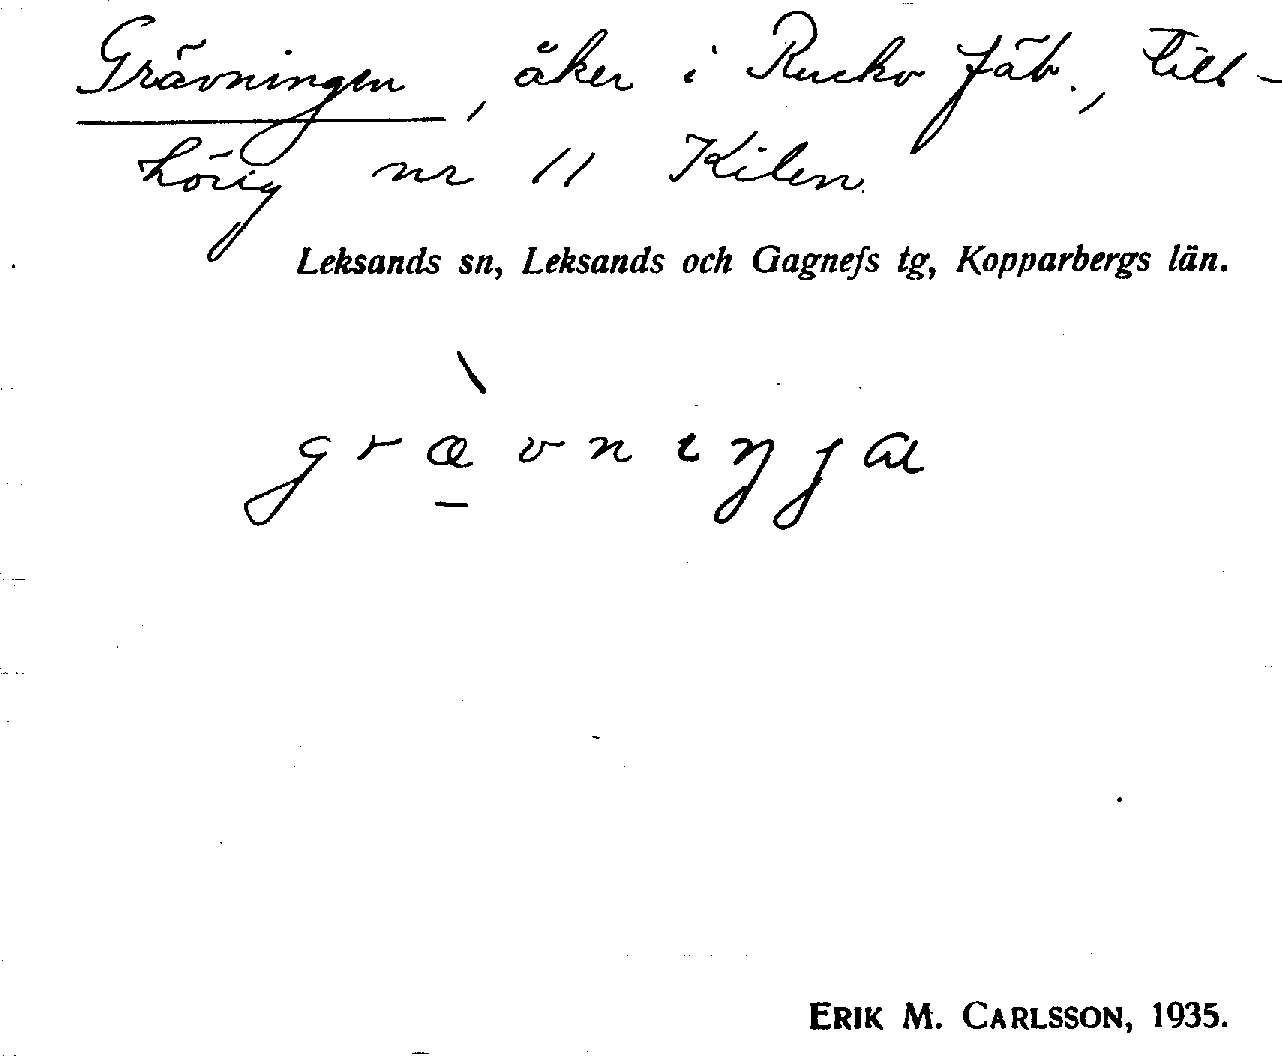 Grävningen, åker i Rucko fäb., till-
hörig nr 11 Kilen.
Leksands sn, Leksands och Gagnefs tg, Kopparbergs län.
græ̠̀vniŋga
ERIK M. CARLSSON, 1935.